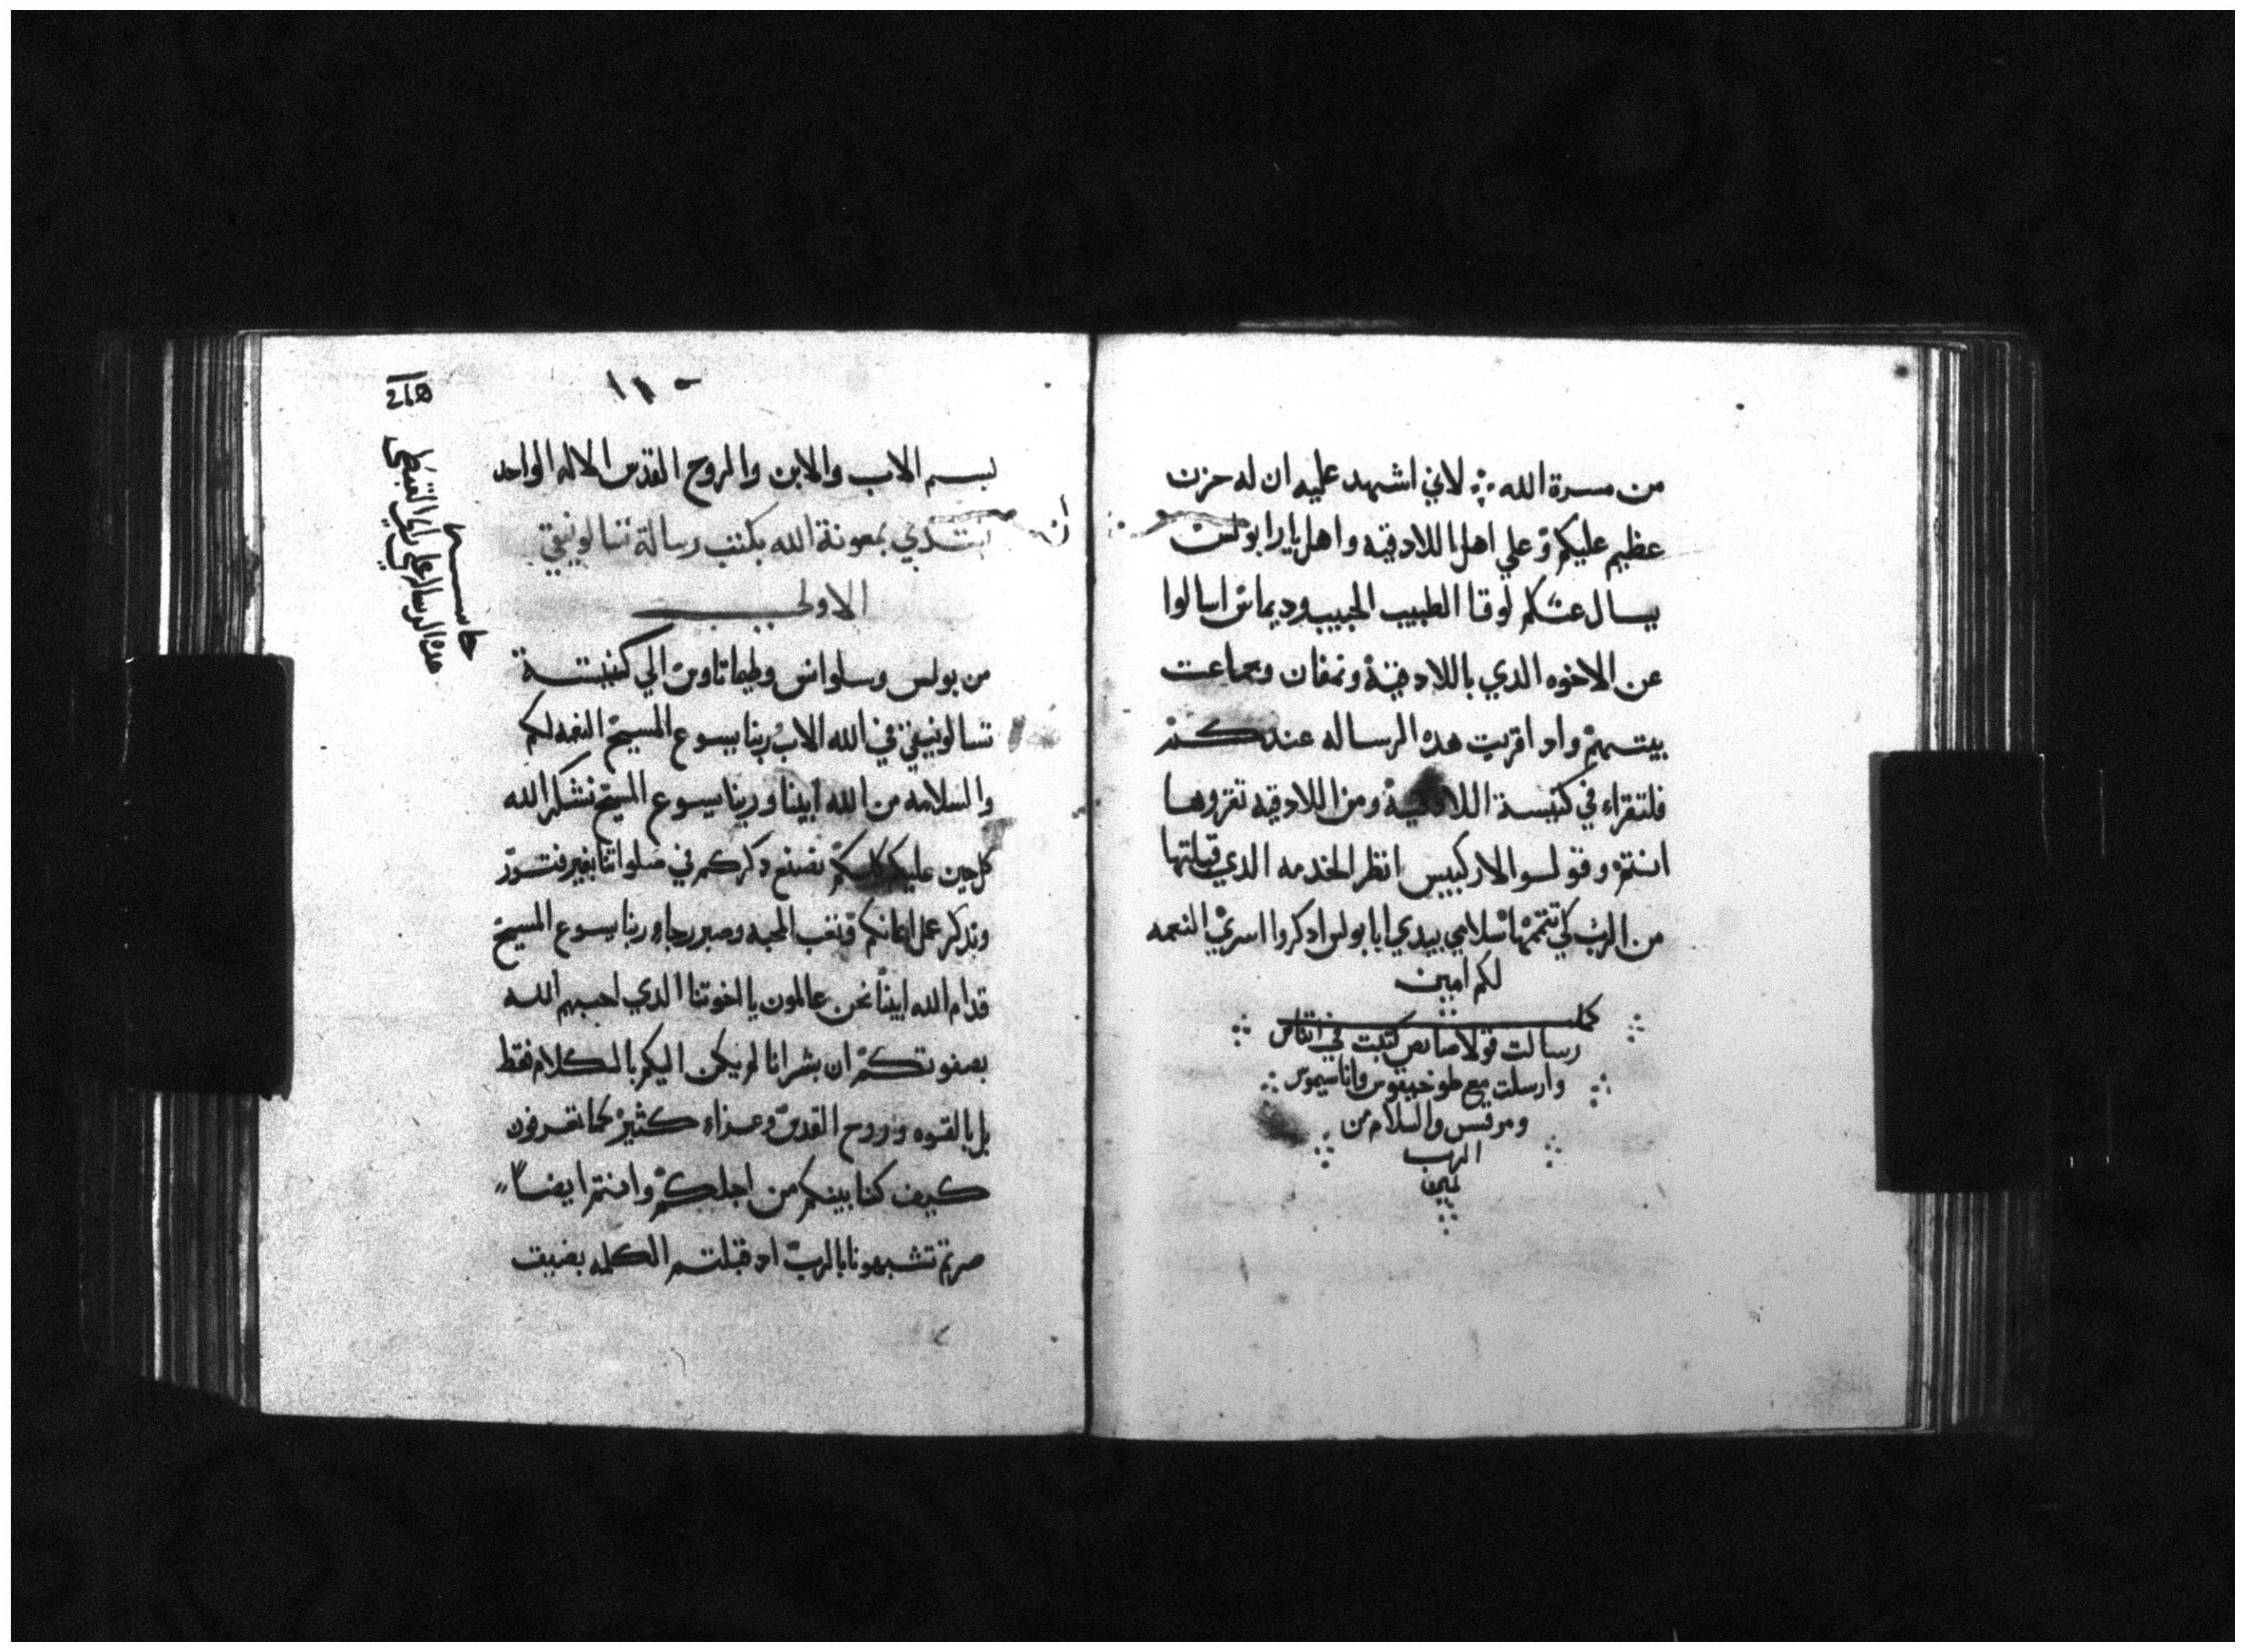 من مسرة الله لاني اشهد عليه ان له حزن
عظيم عليكم وعلي اهل باللادقيه واهل يارابولس
يسال عنكم لوقا الطبيب الحبيب وديماس اسالوا
عن الاخوه الدي باللادقية ونمفان وجماعت
بيتهم واد اقريت هده الرساله عندكم
فلتقراء في كنيسة اللادقية ومن اللادقيه تقروها
انتم وقولوا لاركيبس انظر الخدمه الدي قبلتها
من الرب كي تتممها سلامي بيدي انا بولس ادكروا اسري النعمه
لكم امين
كملت
رسالت قولاصايص كتبت في اتناس
وارسلت مع طوخيقوس واناسيموس
ومرقس والسلام من
الرب
امين
بسم الاب والابن والروح القدس الاله الواحد
نبتدي بمعونة الله بكتب رسالة تسالونيقي
الاولي
من بولس وسلوانس وطيماتاوس الي كنيسة
تسالونيقي في الله الاب ربنا يسوع المسيح النعمه لكم
والسلامه من الله ابينا وربنا يسوع المسيح نشكر الله
كل حين عليكم كلكم نصنع دكركم في صلواتنا بغير فتور
وندكر عمل ايمانكم وتعب المحبه وصبر رجاء ربنا يسوع المسيح
قدام الله ابينا نحن عالمون يا اخوتنا الدي احبهم الله
بصفوتكم ان بشرانا لم يكن اليكم بالكلام فقط
بل بالقوه وروح القدس وعزاء كثير كما تعرفون
كيف كنا بينكم من اجلكم وانتم ايضا
صرتم تشبهونا بالرب اد قبلتم الكلمه بضيقت